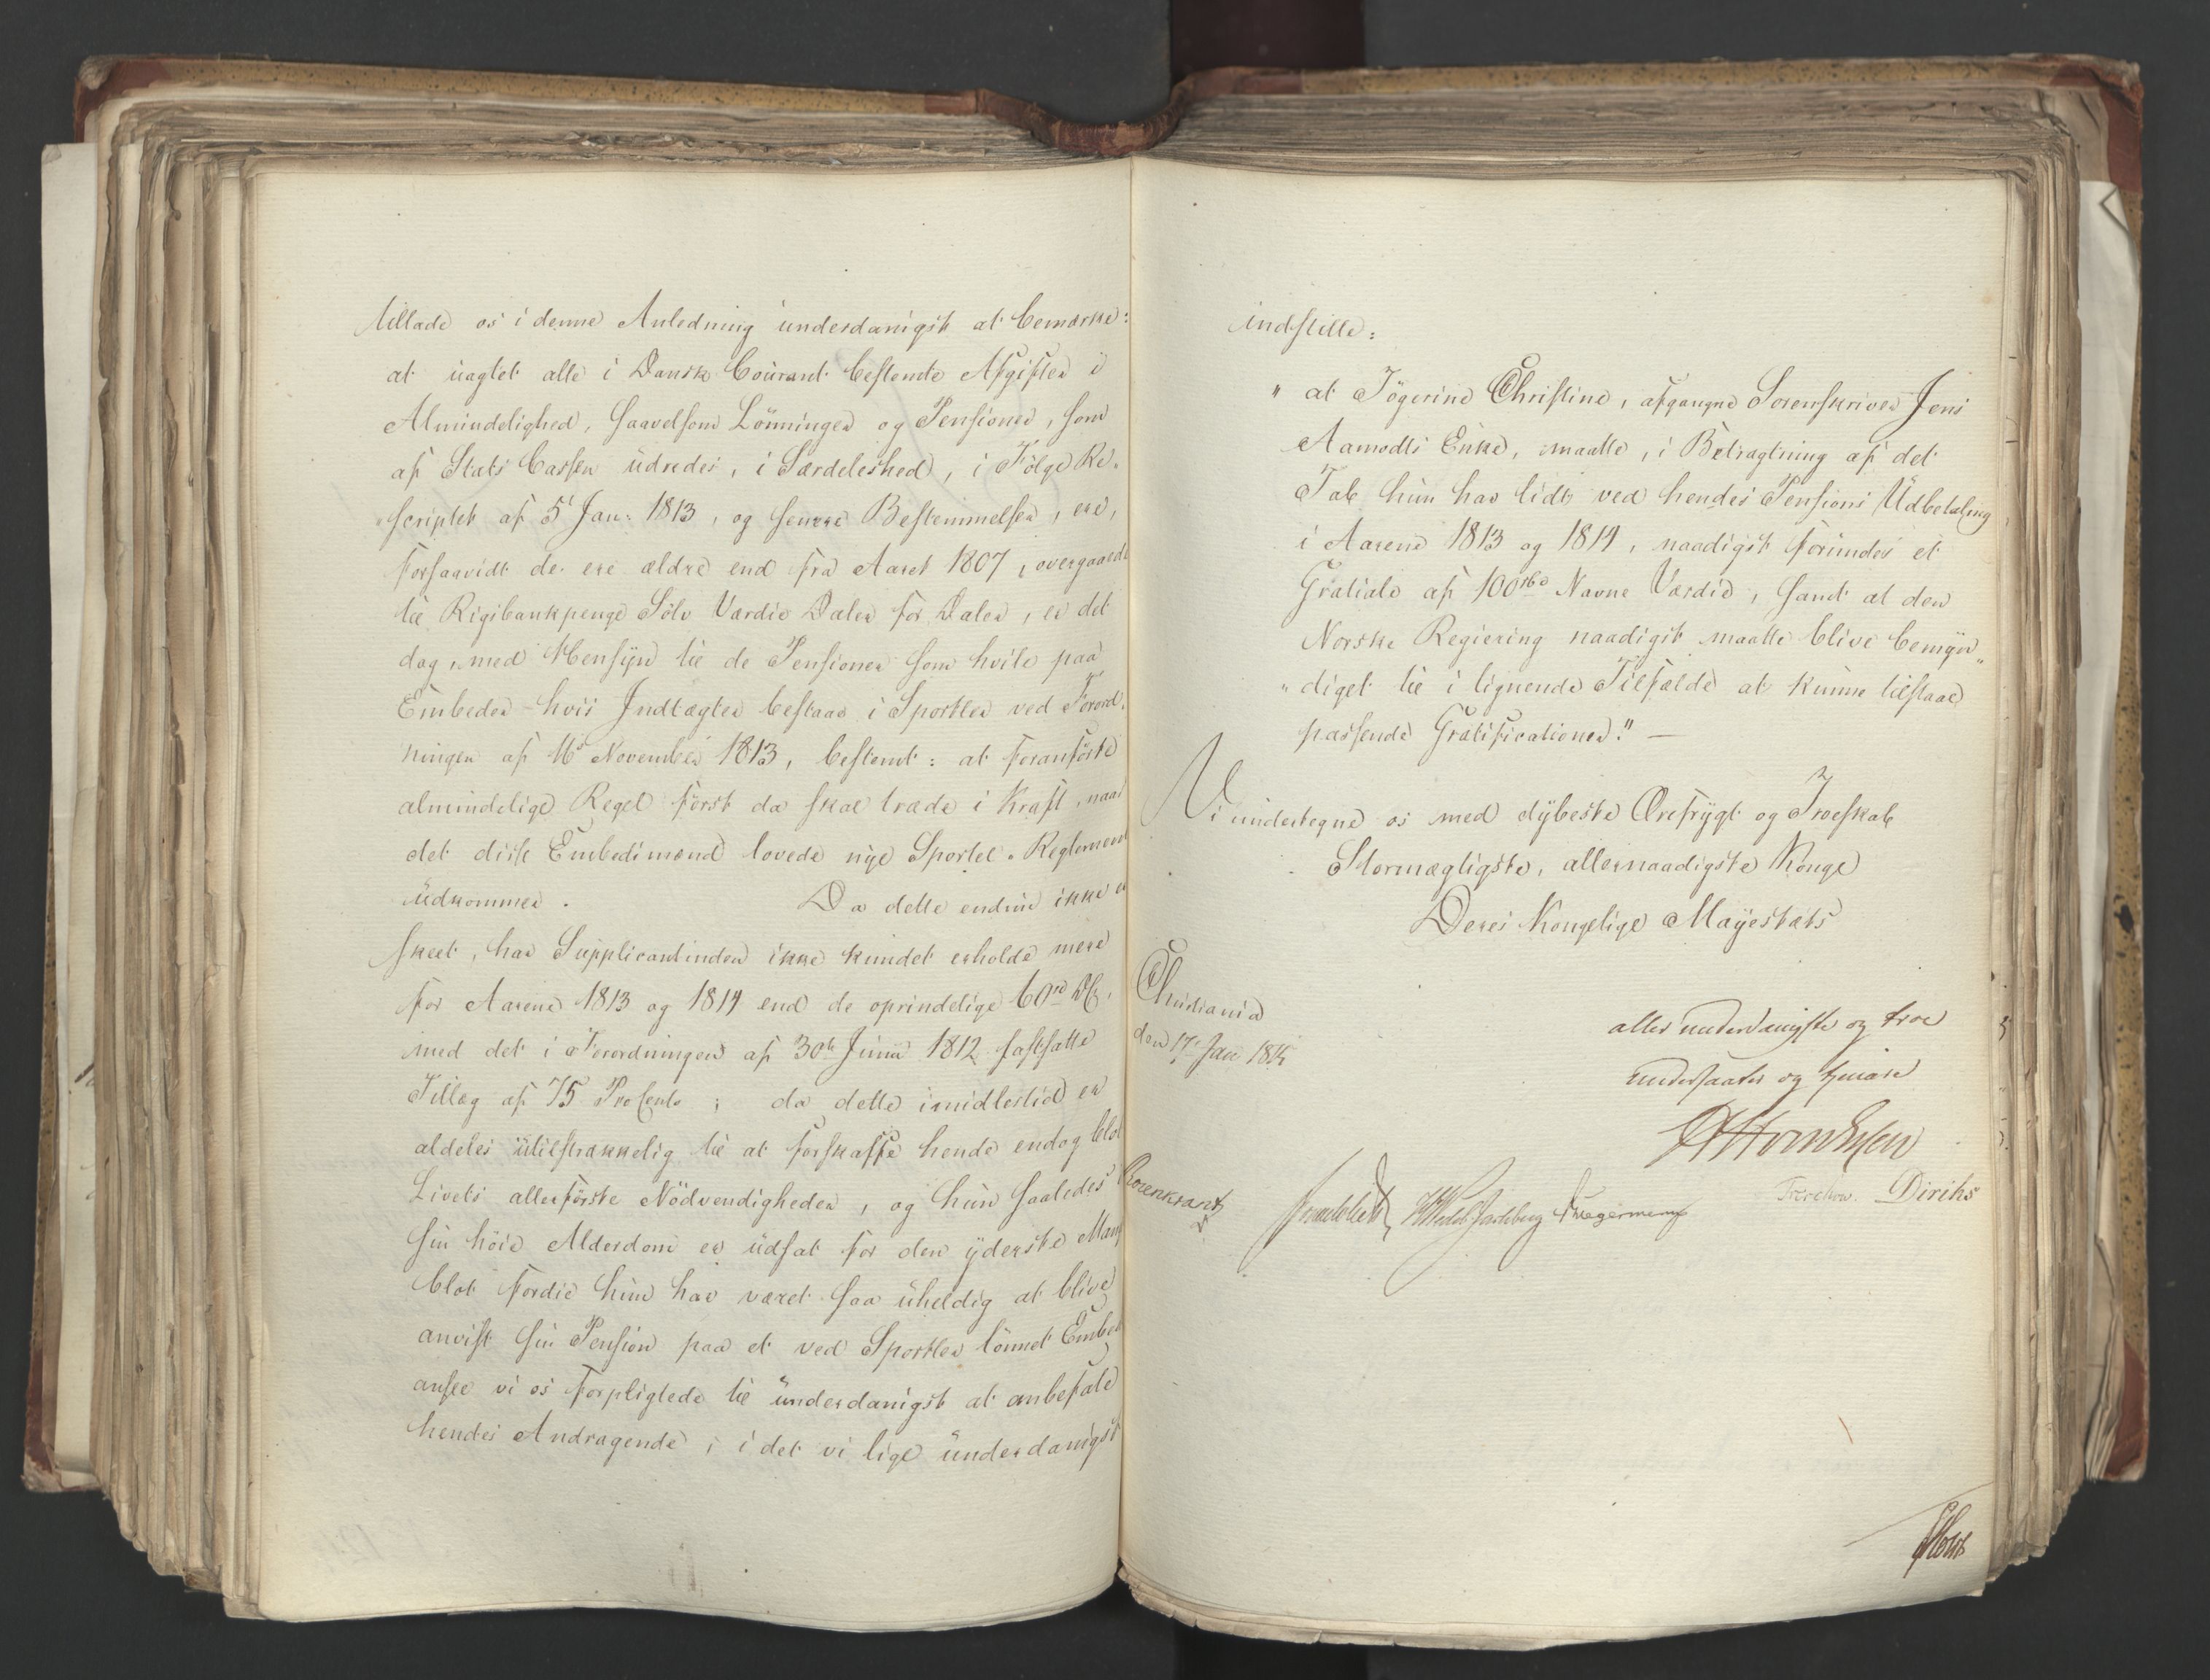 tillade os i denne Anledning underdanigst at bemærke:
at uagtet alle i Dansk Courant bestemte Afgifter i
Almindelighed, saavelsom Lönninger og Pensioner, som
af Stats Cassen udredes, i Særdeleshed, i Fölge Re-
scriptet af 5t Jan: 1813, og senere Bestemmelser, ere,
forsaavidt de ere ældre end fra Aaret 1807, overgaaede
til Rigsbankpenge Sölv Værdie Daler for Daler, er det
dog, med Hensyn til de Pensioner som hvile paa
Embeder hvis Indtægter bestaae i Sportler ved Forord-
ningen af 16 November 1813, bestemt: at foranförte
almindelige Regel först da skal træde i Kraft, naar
det disse Embedsmænd lovede nye Sportel-Reglement
udkommer. Da dette endnu ikke er
skeet, har Supplicantinden ikke kundet erholde mere
for Aarene 1813 og 1814 end de oprindelige 60rd DC,
med det i Forordningen af 30te Junii 1812 fastsatte
Tillæg af 75 ProCento; da dette imidlertid er
aldeles utilstrækkelig til at forskaffe hende endog blot
Livets allerförste Nödvendigheder, og hun saaledes i
sin höie Alderdom er udsat for den yderste Mang
blot fordie hun har været saa uheldig at blive
anvist sin Pension paa et ved Sportler lönnet Embed
ansee vi os forpligtede til underdanigst at anbefale
hendes Andragende, i det vi lige underdanigst
indstille:
" at Jögerine Christine, afgangne Sorenskriver Jens
Aamodts Enke, maatte, i Betragtning af det
Tab hun har lidt ved hendes Pensions Udbetaling
i Aarene 1813 og 1814, naadigst forundes et
Gratiale af 100rbd Navne Værdie, samt at den
Norske Regiering naadigst maatte blive bemyn-
" diget til i lignende Tilfælde at kunne tilstaae
passende Gratificationer." —
Vi undertegne os med dybeste Ærefrygt og Troeskab
Stormægtigste, allernaadigste Konge
Deres Kongelige Mayestæts
Christiania
den 17 Jan 1815
aller underdanigste og troe
undersaatter og tienere
Rosenkrantz
Sommerfeldt HWedel Jarlsberg Krægermeny Treschow. Diriks
Holst